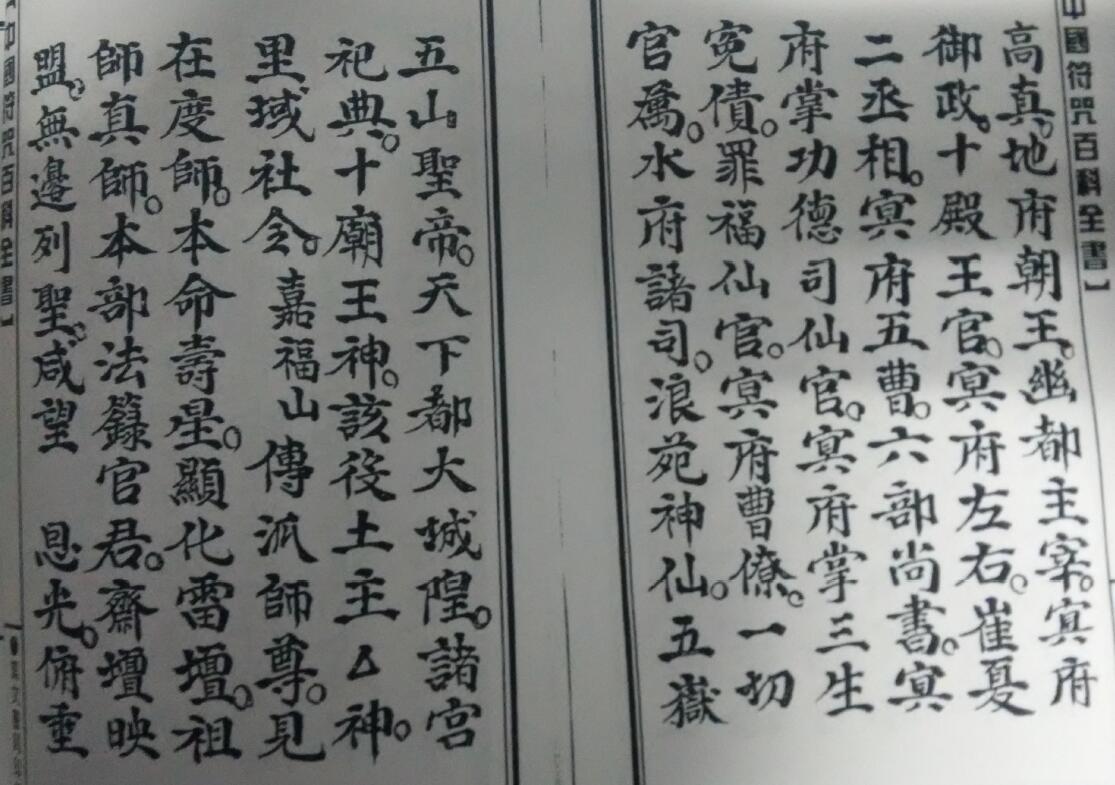 中國符咒百科全書】
高真。地府朝王。幽都主宰。冥府
御政。十殿王官。冥府左右。崔夏
二丞相。冥府五曹。六部尚書。冥
府掌功德司仙官。冥府掌三生
冤債。罪福仙官。冥府曹僚。一切
官属。水府諸司。浪苑神仙。五嶽
五山聖帝。天下都大城隍。諸宮
祀典。十廟王神。該役土主△神。
里域社令。嘉福山傳派師尊。見
在度師。本命壽星。顯化雷壇。祖
師真師。本部法籙官君。齋壇映
盟。無邊列聖。咸望 恩光。俯重
中國符咒百科全書】